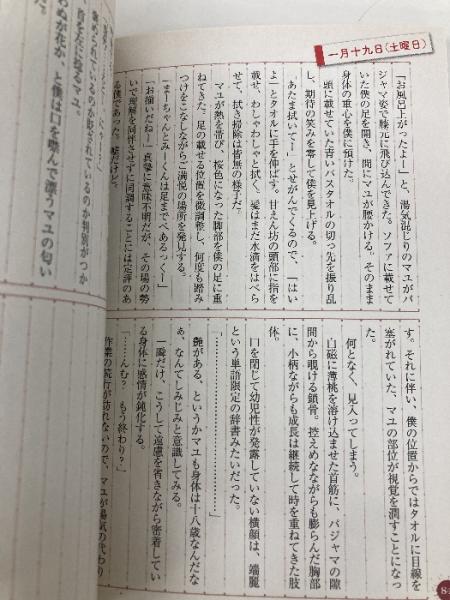 一月十九日(土曜日)
「お風呂上がったよー!」と、湯気混じりのマユがパ
ジャマ姿で膝元に飛び込んできた。ソファに載せて
いた僕の足を開き、間にマユが腰かける。そのまま
身体の重心を僕に預けた。
頭に載せていた青いバスタオルの切っ先を振り乱
し、期待の笑みを零して僕を見上げる。
「あたま拭いてー」とせがんでくるので、「はい
よ」とタオルに手を伸ばす。甘えん坊の頭部に指を
載せ、わしゃわしゃと拭く。愛はまだ水滴をはべら
せて、拭き掃除は皆無の様子だ。
マユが熱を帯び、桜色になった脚部を僕の足に重
ねてきた。足の載せる位置を微調整し、何度も踏み
つけをこなしながらご満悦の場所を発見する。
「まーちゃんとみーくんは足までぺあるっくー」
「お揃いだね!」真摯に意味不明だが、その場の勢
いで理解を同伴させずに同調することには定評のあ
る僕であった。嘘だけど。
褒められているのか貶されているのか判別がつか
ず、首を左に捻るマユ。
わぬが花か、と僕は口を噤んで漂うマユの匂い
す。それに伴い、僕の位置からではタオルに目線を
塞がれていた、マユの部位が視覚を潤すことになっ
た。
何となく、見入ってしまう。
白磁に薄桃を溶け込ませた首筋に、パジャマの隙
間から覗ける鎖骨。控えめながらも膨らんだ胸部
に、小柄ながらも成長は継続して時を重ねてきた肢
体。
口を閉じて幼児性が発露していない横顔は、端麗
という単語限定の辞書みたいだった。
「……………………」
艶がある、というかマユも身体は十八歳なんだな
ぁ、なんてしみじみと意識してみる。
一瞬だけ、こうして遠慮を省きながら密着してい
る身体に感情が鈍化する。
「……んむ?　もう終わり?」
作業の続行が訪れないので、マユが陽気の代わり